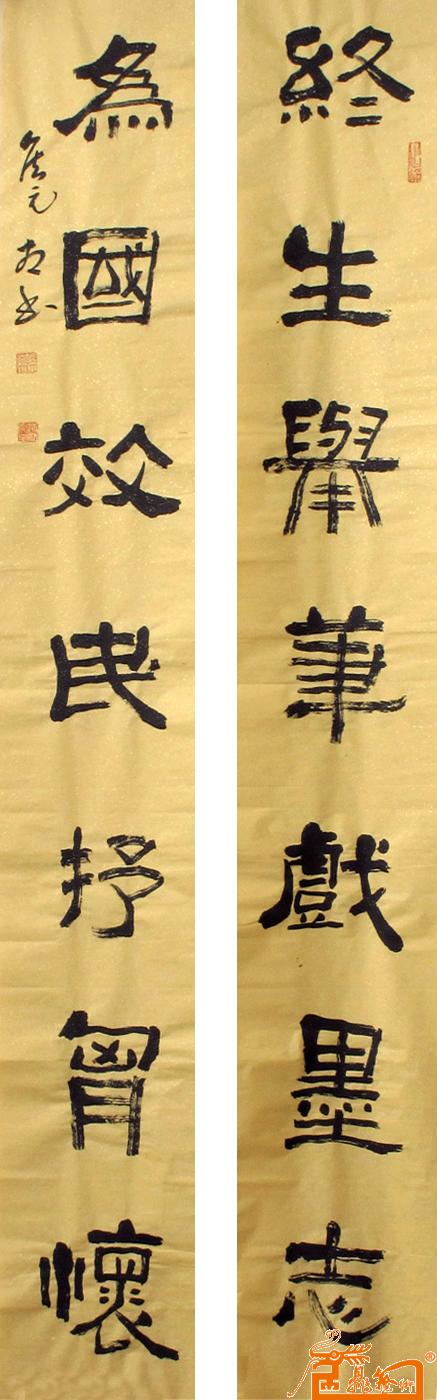 終生舉筆戲墨志
為國效民抒胷懷